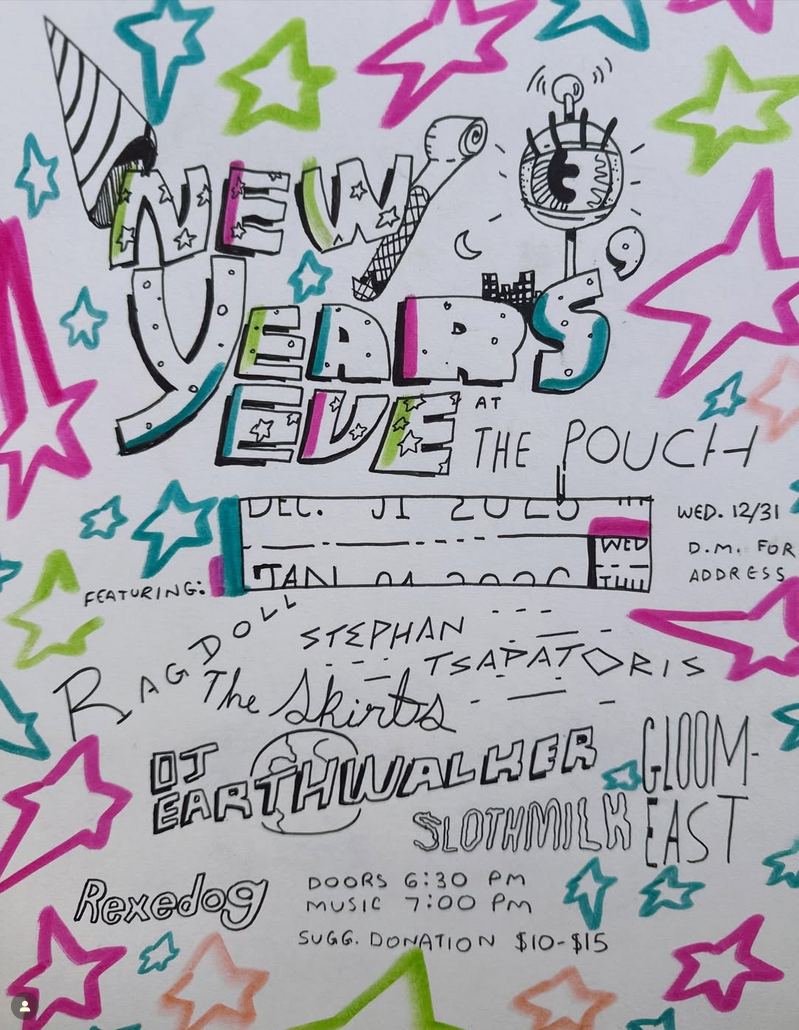 NEW
YEAR'S
EVE AT
THE POUCH
DEC. 31 2025
WED
JAN 01 2026
THU
WED. 12/31
D.M. FOR
ADDRESS
FEATURING:
RAGDOLL
STEPHAN
TSAPATORIS
The Skirts
DJ
EARTHWALKER
GLOOM-
EAST
SLOTHMILK
Rexedog
DOORS 6:30 PM
MUSIC 7:00 PM
SUGG. DONATION $10-$15